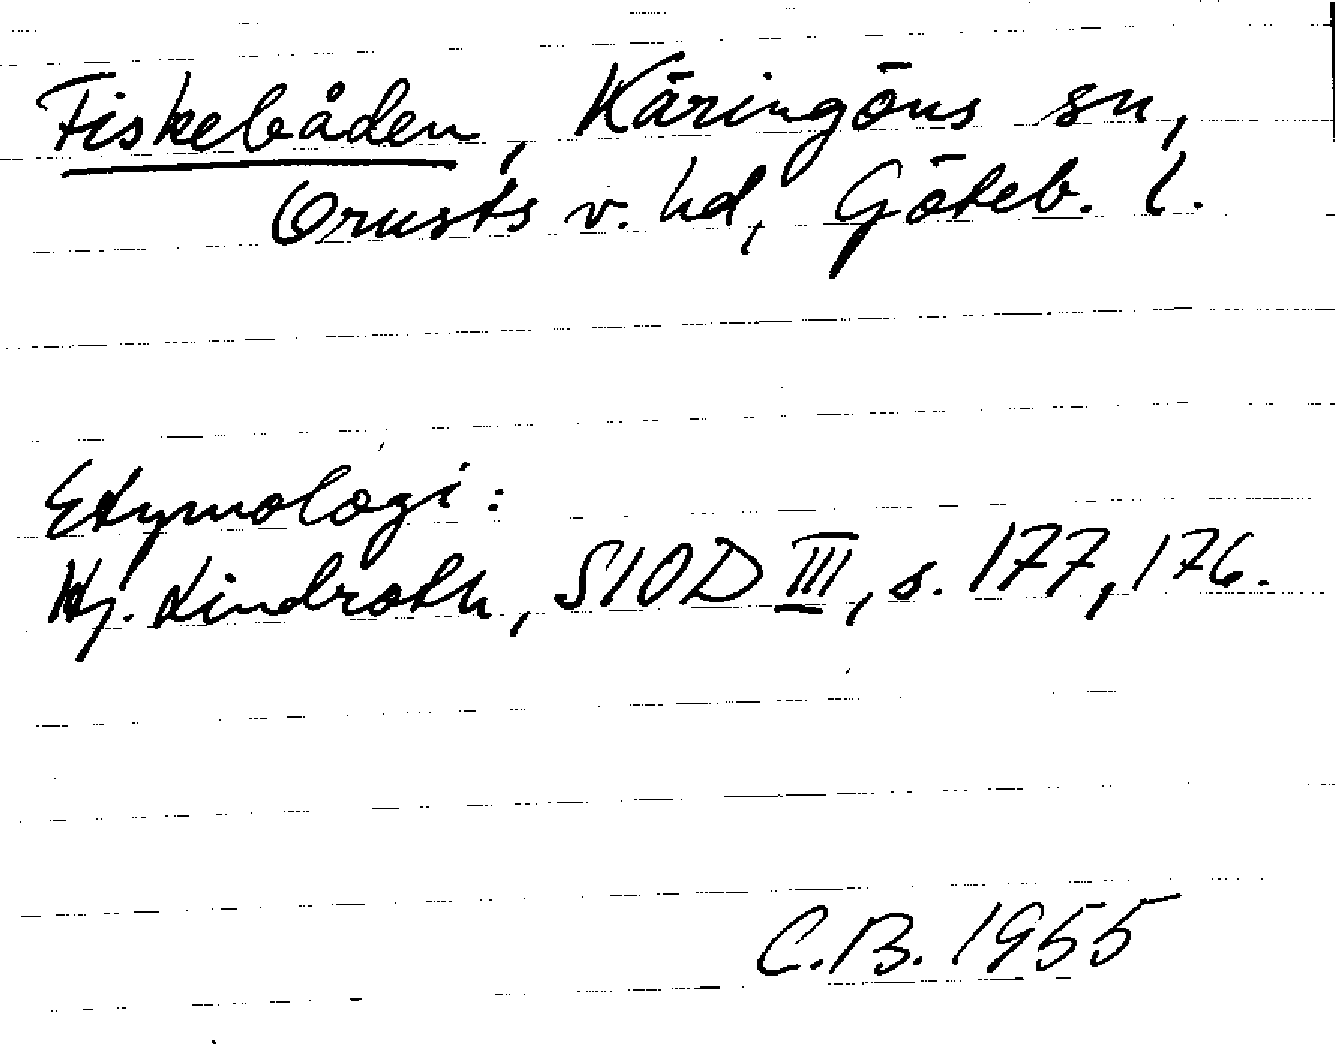 Fiskebåden, Käringöns sn,
Orusts v. hd, Göteb. l.
Etymologi:
Hj. Lindroth, SIOD III, s. 177, 176.
C.B. 1955